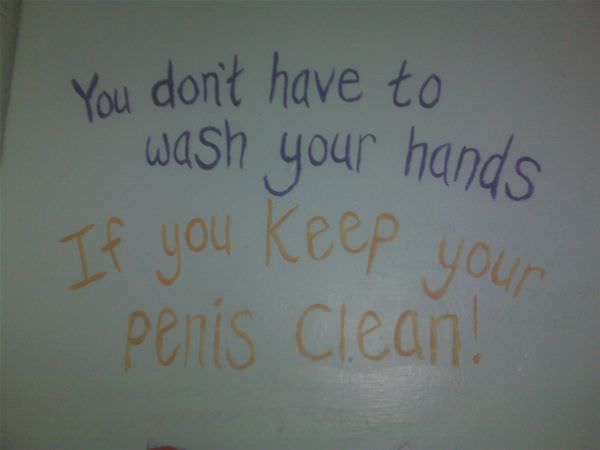 You don't have to
wash your hands
If you keep your
penis clean!